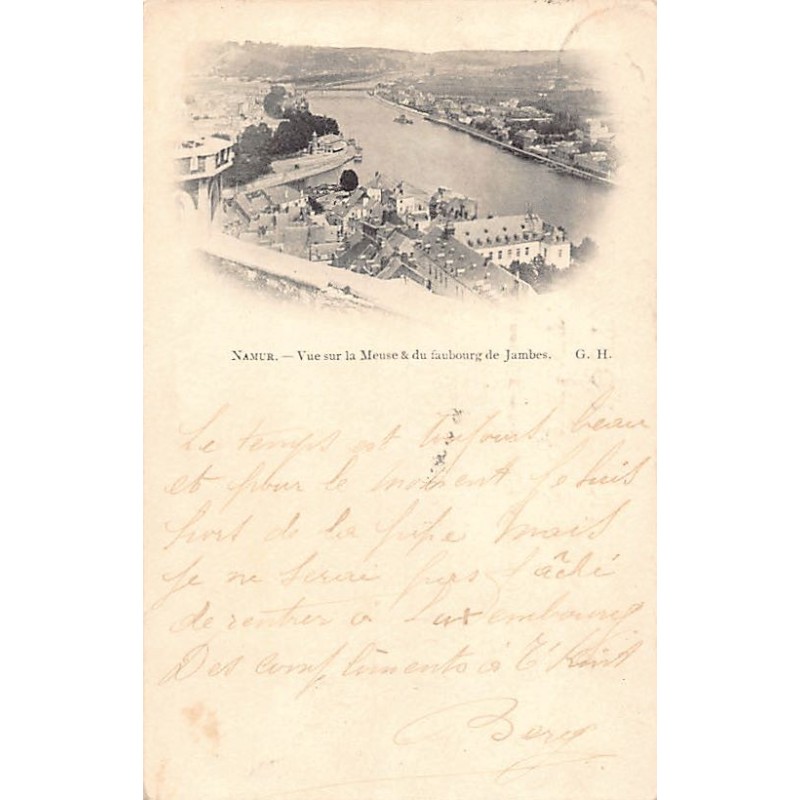 NAMUR. — Vue sur la Meuse & du faubourg de Jambes. G. H.
Le temps est toujours beau
et pour le moment je suis
hors de la pipe mais
je ne serai pas fâché
de rentrer à Luxembourg
Des compliments à
Berg